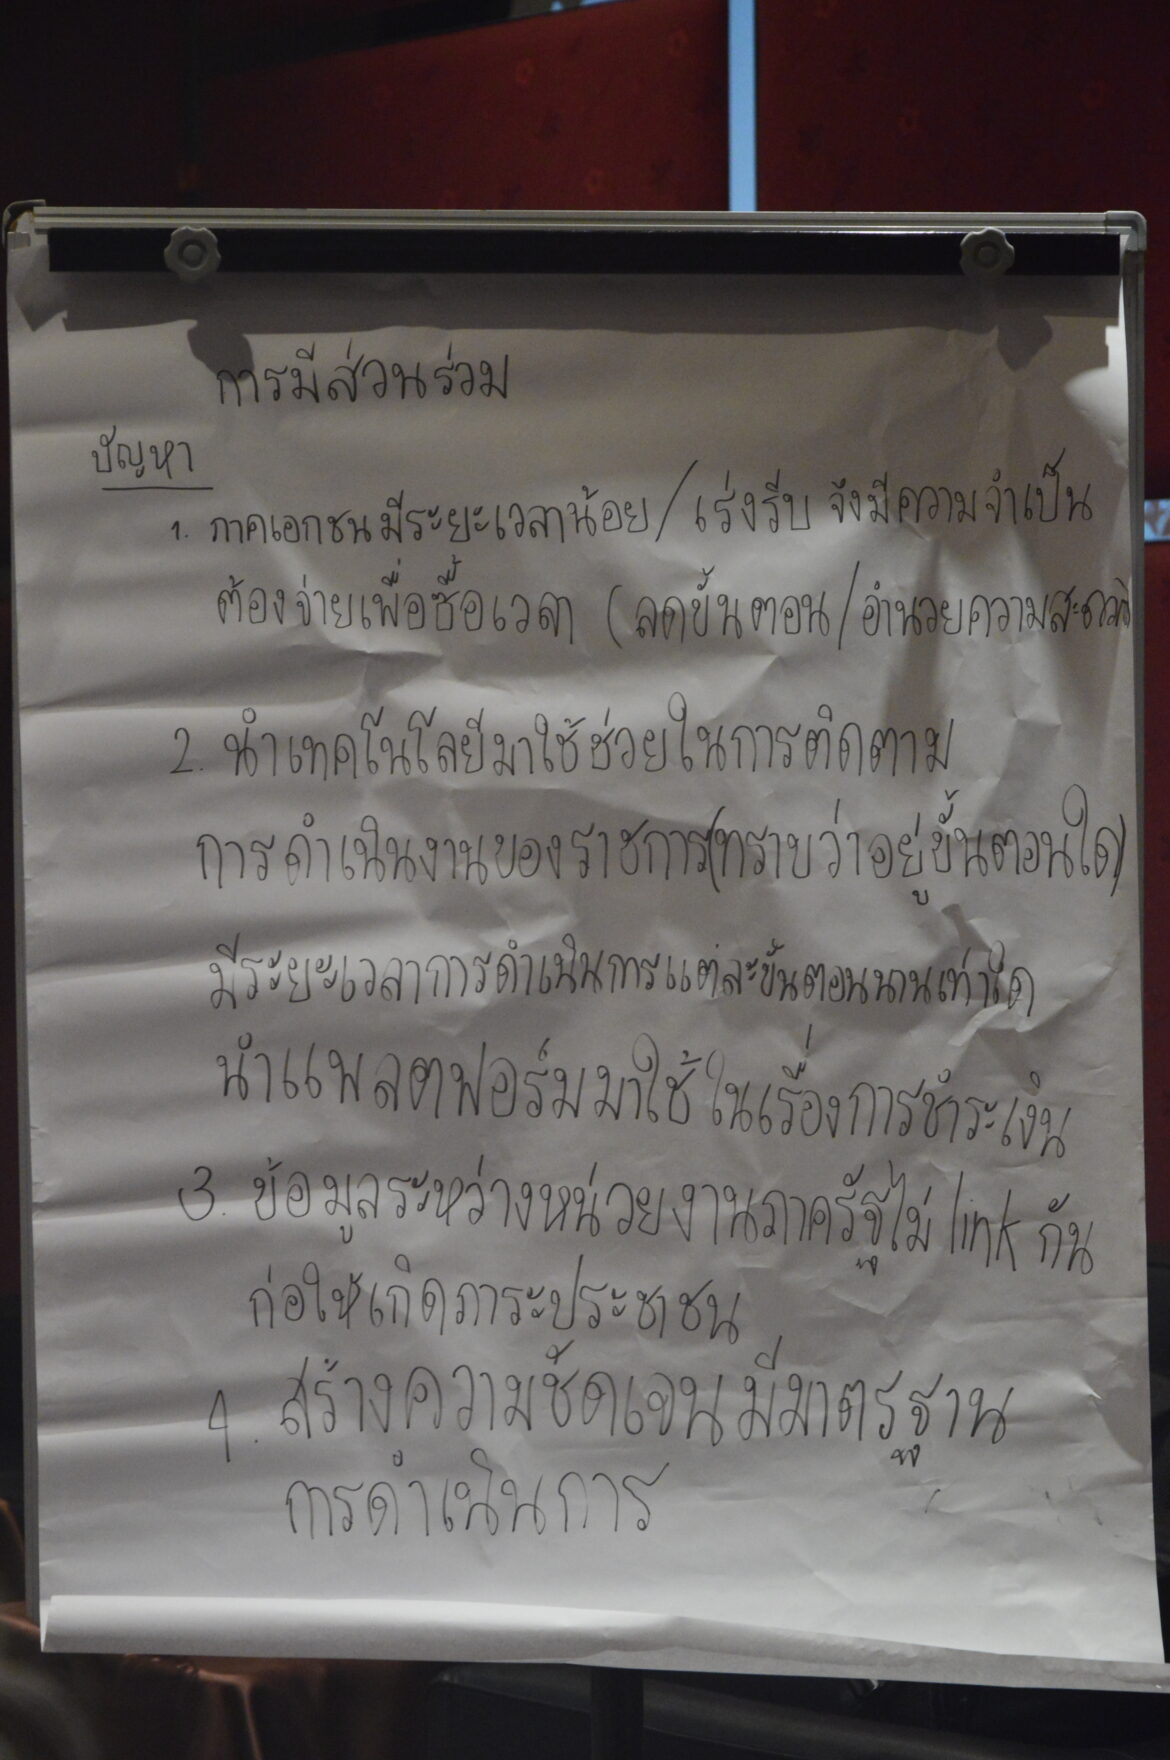 การมีส่วนร่วม
ปัญหา
1. ภาคเอกชนมีระยะเวลาน้อย/เร่งรีบ จึงมีความจำเป็น
ต้องจ่ายเพื่อซื้อเวลา (ลดขั้นตอน/อำนวยความสะดวก)
2. นำเทคโนโลยีมาใช้ช่วยในการติดตาม
การดำเนินงานของราชการ(ทราบว่าอยู่ขั้นตอนใด)
มีระยะเวลาการดำเนินการแต่ละขั้นตอนนานเท่าใด
นำแพลตฟอร์มมาใช้ในเรื่องการชำระเงิน
3. ข้อมูลระหว่างหน่วยงานภาครัฐไม่ link กัน
ก่อให้เกิดภาระประชาชน
4. สร้างความชัดเจน มีมาตรฐาน
การดำเนินการ